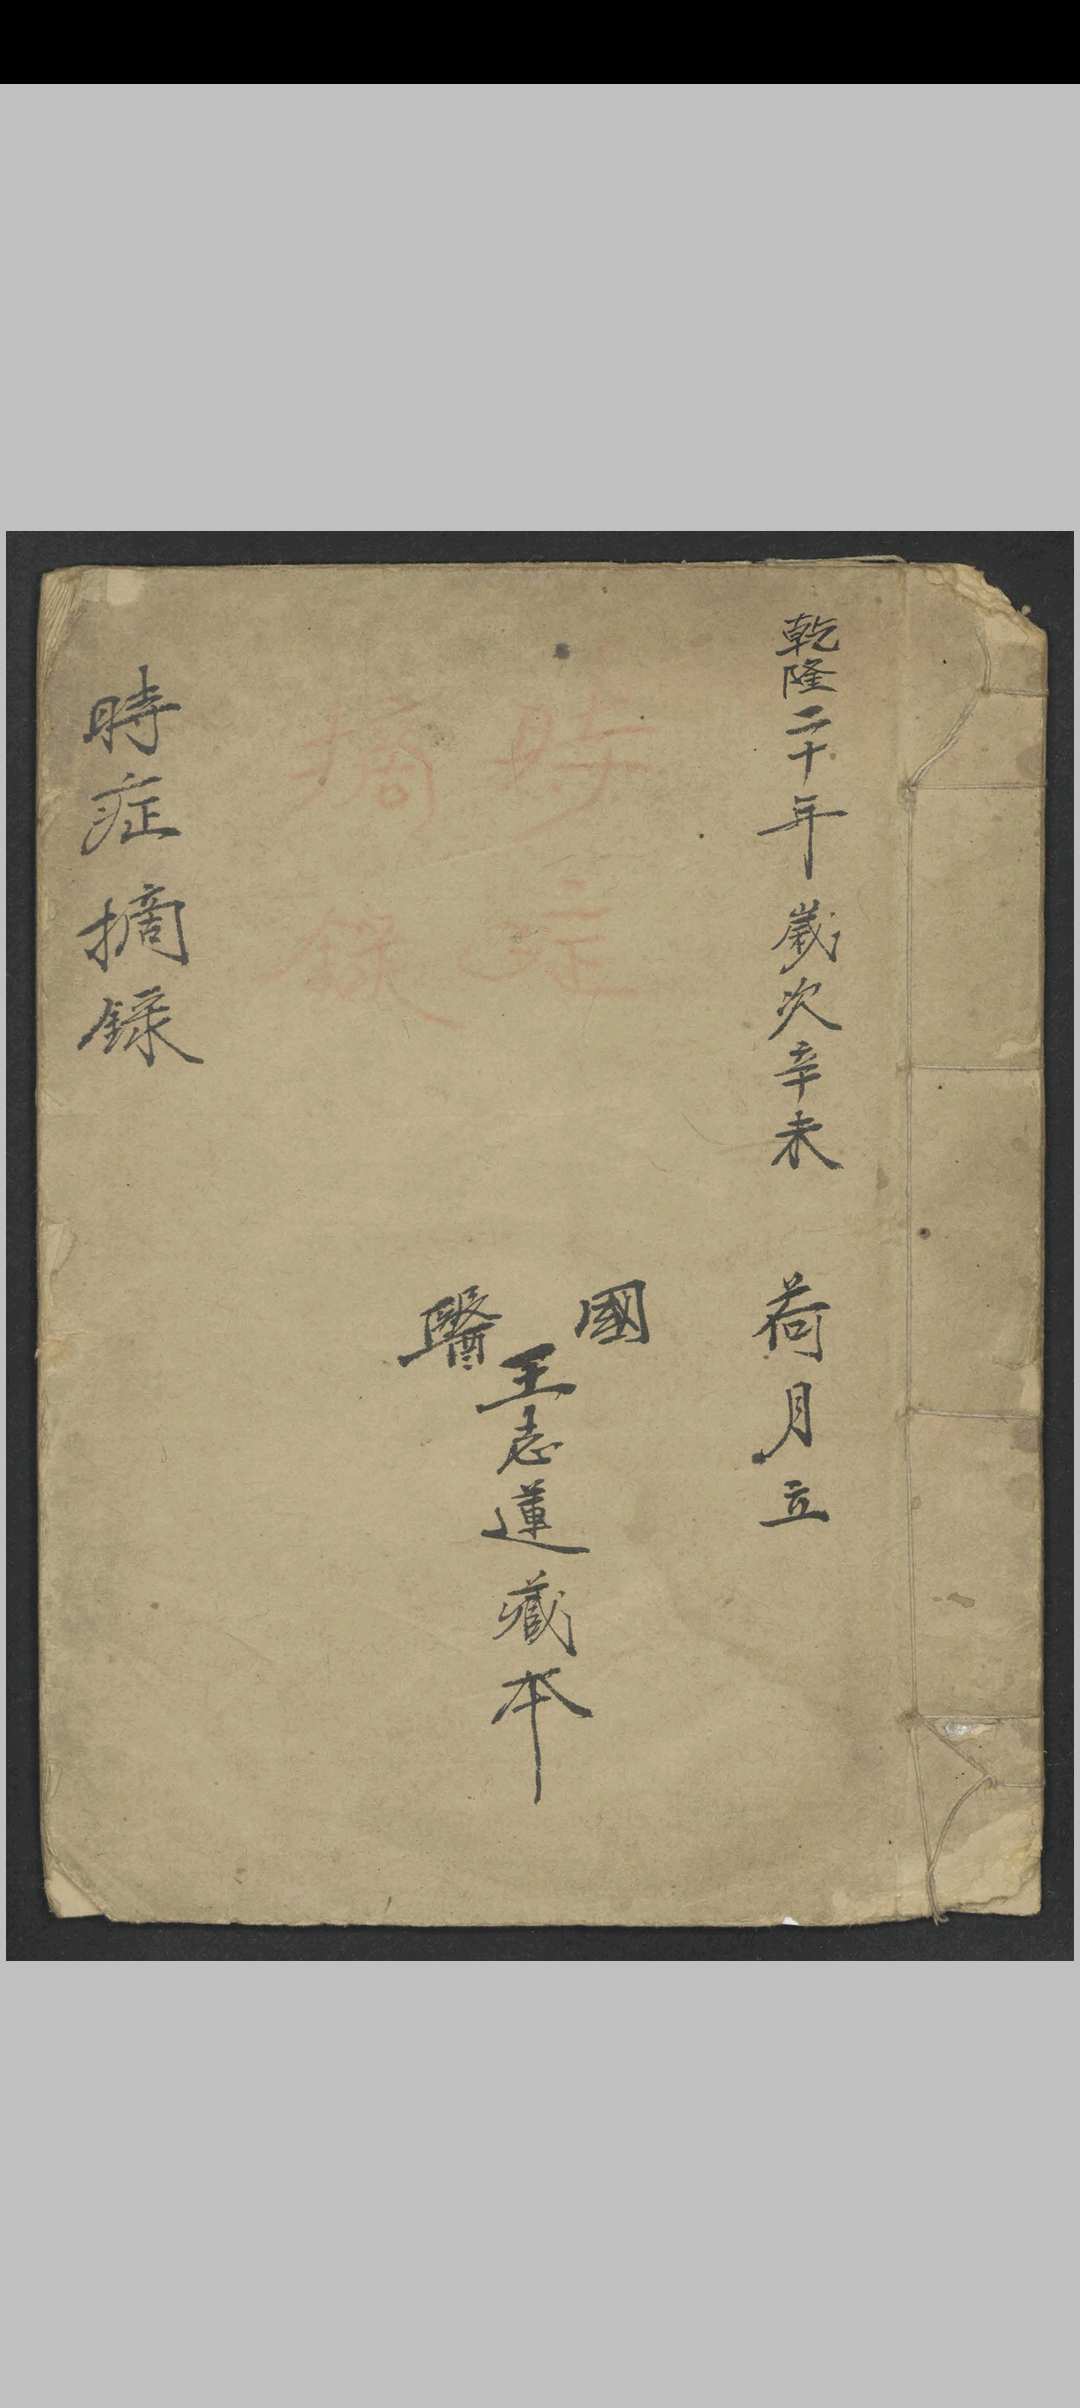 乾隆二十年歲次辛未 荷月立
國醫
王志蓮藏本
時症
摘錄
時症摘録